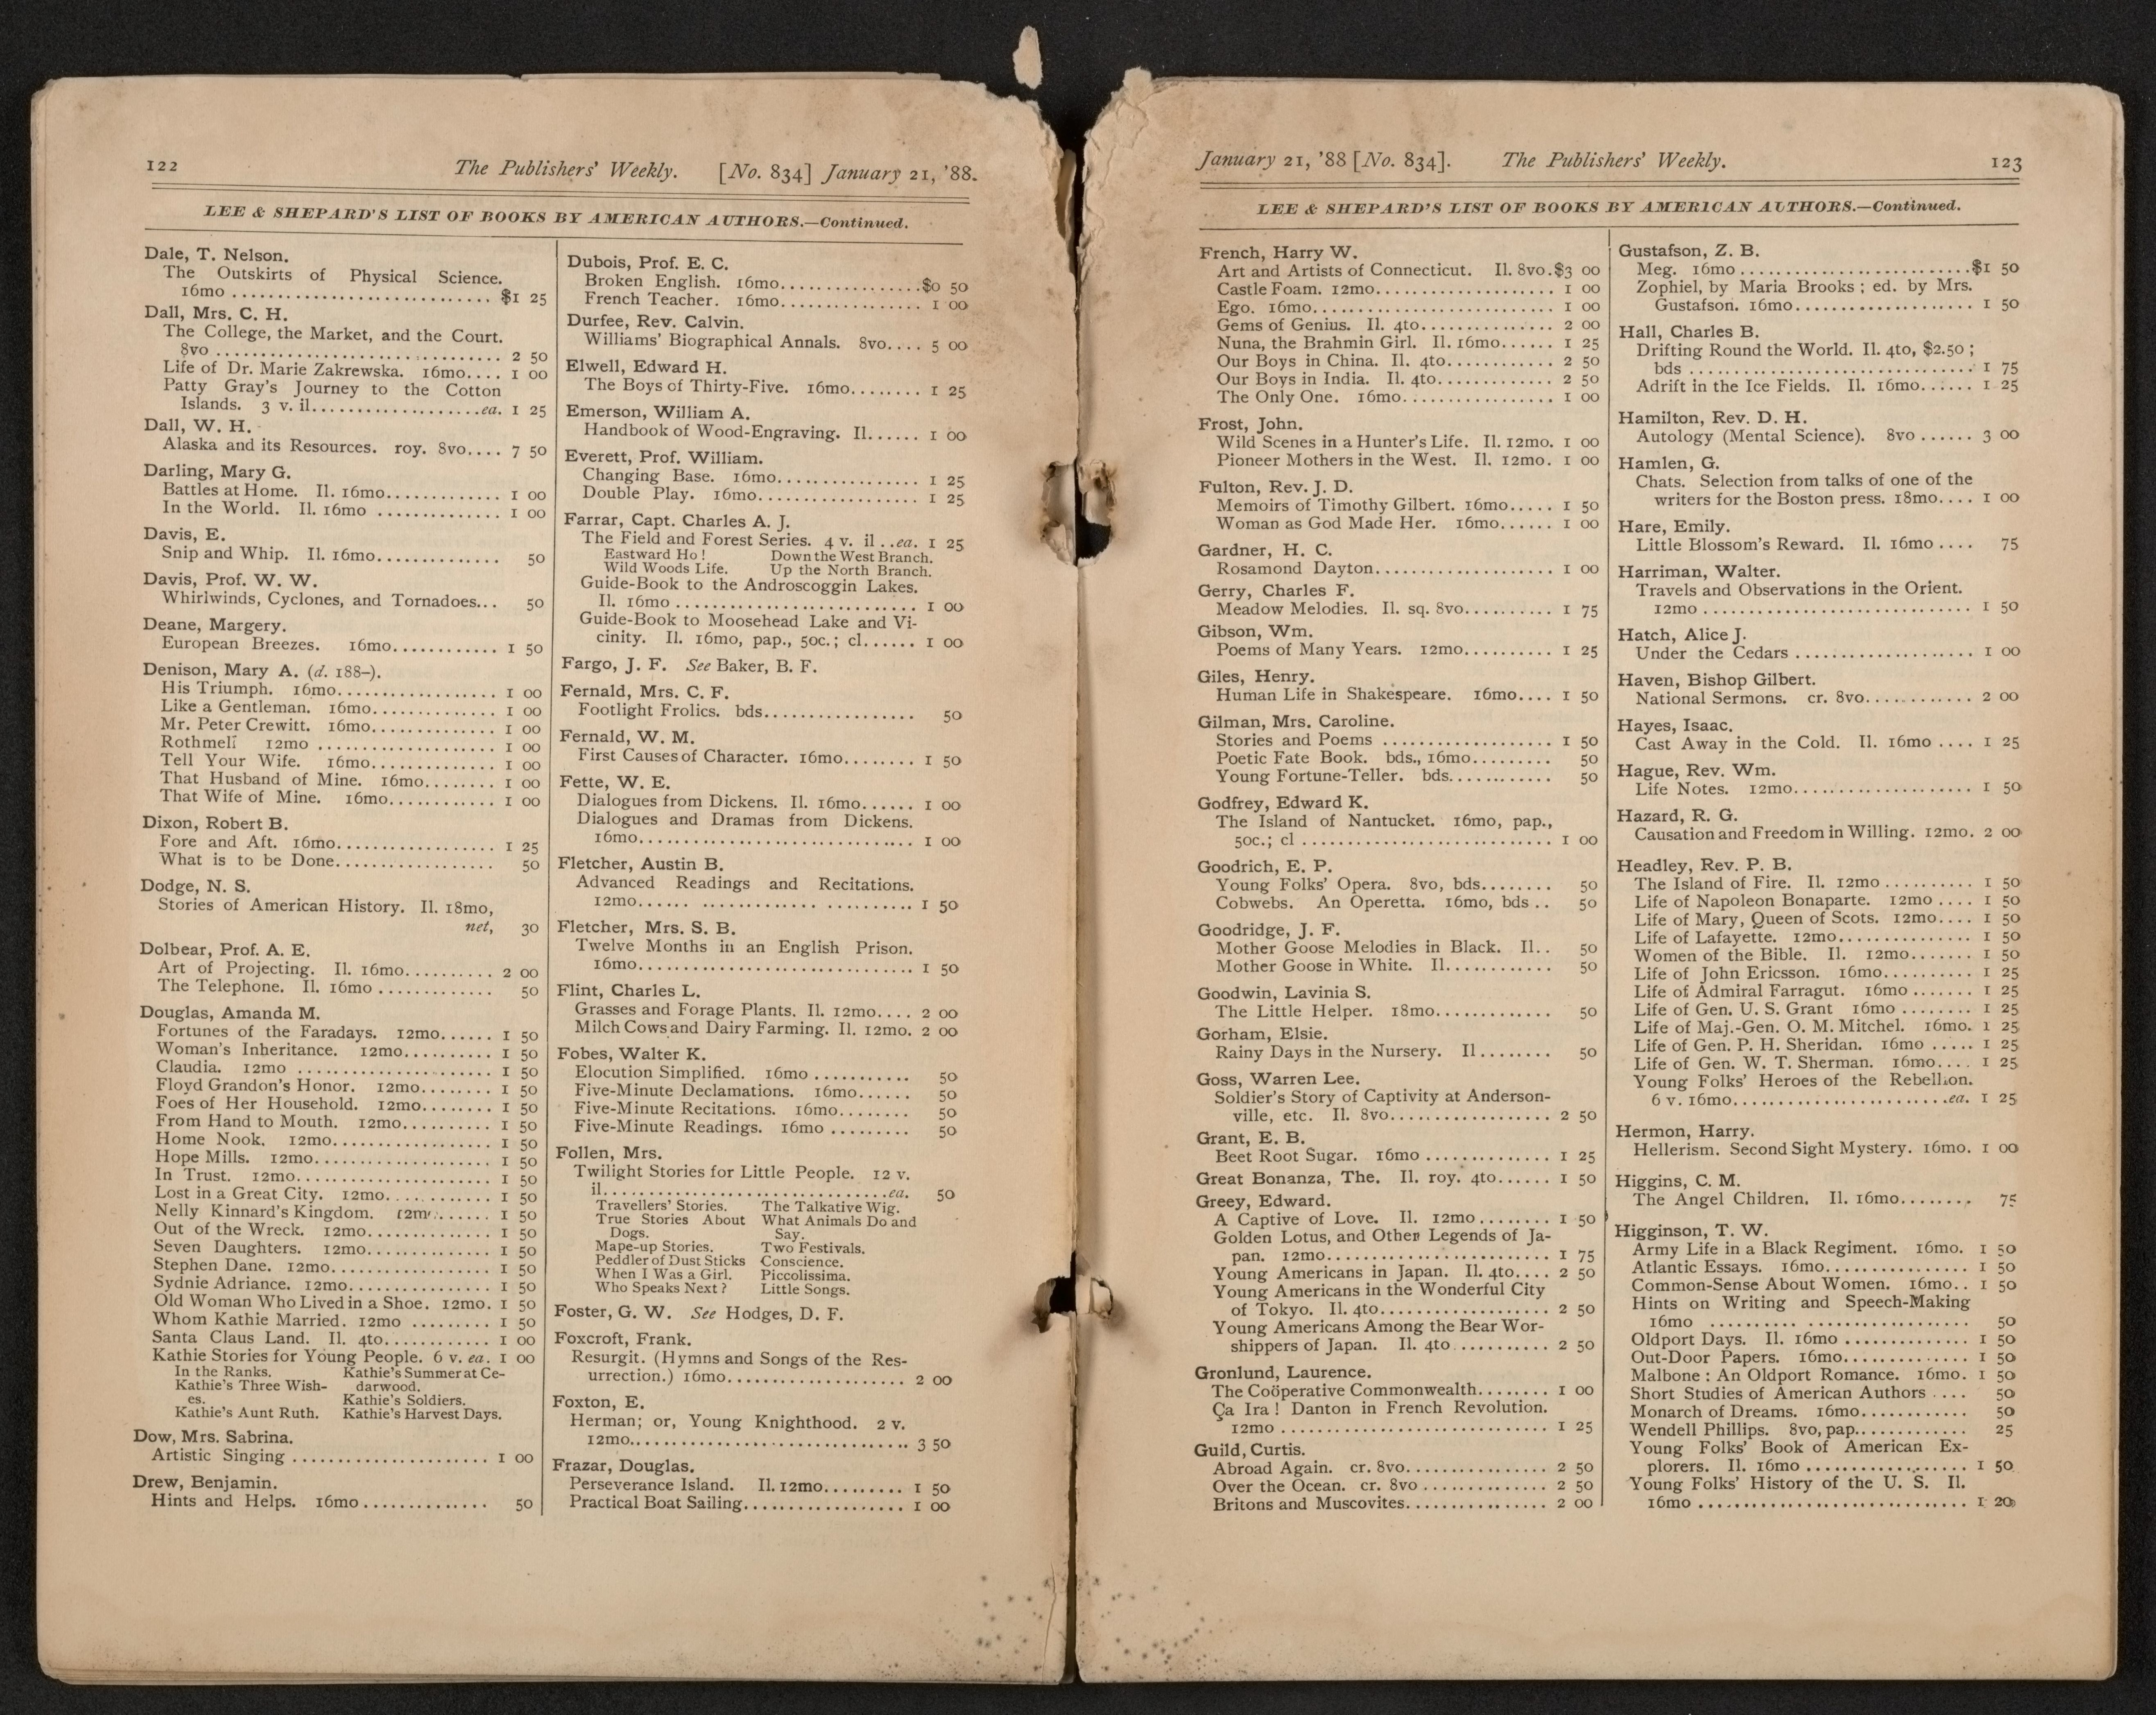 122 The Publishers' Weekly. [No. 834] January 21, '88.
LEE & SHEPARD'S LIST OF BOOKS BY AMERICAN AUTHORS.—Continued.
Dale, T. Nelson.
The Outskirts of Physical Science.
16mo .............................. $1 25
Dall, Mrs. C. H.
The College, the Market, and the Court.
8vo ................................ 2 50
Life of Dr. Marie Zakrewska. 16mo.... 1 00
Patty Gray's Journey to the Cotton
Islands. 3 v. il...................ea. 1 25
Dall, W. H.
Alaska and its Resources. roy. 8vo.... 7 50
Darling, Mary G.
Battles at Home. Il. 16mo............. 1 00
In the World. Il. 16mo .............. 1 00
Davis, E.
Snip and Whip. Il. 16mo............. 50
Davis, Prof. W. W.
Whirlwinds, Cyclones, and Tornadoes... 50
Deane, Margery.
European Breezes. 16mo............ 1 50
Denison, Mary A. (d. 188–).
His Triumph. 16mo.................. 1 00
Like a Gentleman. 16mo.............. 1 00
Mr. Peter Crewitt. 16mo.............. 1 00
Rothmell 12mo .................... 1 00
Tell Your Wife. 16mo.............. 1 00
That Husband of Mine. 16mo........ 1 00
That Wife of Mine. 16mo............ 1 00
Dixon, Robert B.
Fore and Aft. 16mo.................. 1 25
What is to be Done.................. 50
Dodge, N. S.
Stories of American History. Il. 18mo,
net, 30
Dolbear, Prof. A. E.
Art of Projecting. Il. 16mo.......... 2 00
The Telephone. Il. 16mo ............. 50
Douglas, Amanda M.
Fortunes of the Faradays. 12mo...... 1 50
Woman's Inheritance. 12mo.......... 1 50
Claudia. 12mo ...................... 1 50
Floyd Grandon's Honor. 12mo........ 1 50
Foes of Her Household. 12mo........ 1 50
From Hand to Mouth. 12mo.......... 1 50
Home Nook. 12mo.................. 1 50
Hope Mills. 12mo.................... 1 50
In Trust. 12mo...................... 1 50
Lost in a Great City. 12mo............ 1 50
Nelly Kinnard's Kingdom. 12mo...... 1 50
Out of the Wreck. 12mo.............. 1 50
Seven Daughters. 12mo.............. 1 50
Stephen Dane. 12mo.................. 1 50
Sydnie Adriance. 12mo................ 1 50
Old Woman Who Lived in a Shoe. 12mo. 1 50
Whom Kathie Married. 12mo ......... 1 50
Santa Claus Land. Il. 4to............ 1 00
Kathie Stories for Young People. 6 v. ea. 1 00
In the Ranks. Kathie's Summer at Ce-
Kathie's Three Wish- darwood.
es. Kathie's Soldiers.
Kathie's Aunt Ruth. Kathie's Harvest Days.
Dow, Mrs. Sabrina.
Artistic Singing ...................... 1 00
Drew, Benjamin.
Hints and Helps. 16mo .............. 50
Dubois, Prof. E. C.
Broken English. 16mo................$0 50
French Teacher. 16mo................ 1 00
Durfee, Rev. Calvin.
Williams' Biographical Annals. 8vo.... 5 00
Elwell, Edward H.
The Boys of Thirty-Five. 16mo........ 1 25
Emerson, William A.
Handbook of Wood-Engraving. Il...... 1 00
Everett, Prof. William.
Changing Base. 16mo................ 1 25
Double Play. 16mo.................. 1 25
Farrar, Capt. Charles A. J.
The Field and Forest Series. 4 v. il ..ea. 1 25
Eastward Ho! Down the West Branch.
Wild Woods Life. Up the North Branch.
Guide-Book to the Androscoggin Lakes.
Il. 16mo ............................ 1 00
Guide-Book to Moosehead Lake and Vi-
cinity. Il. 16mo, pap., 50c.; cl...... 1 00
Fargo, J. F. See Baker, B. F.
Fernald, Mrs. C. F.
Footlight Frolics. bds................ 50
Fernald, W. M.
First Causes of Character. 16mo........ 1 50
Fette, W. E.
Dialogues from Dickens. Il. 16mo...... 1 00
Dialogues and Dramas from Dickens.
16mo................................ 1 00
Fletcher, Austin B.
Advanced Readings and Recitations.
12mo................................ 1 50
Fletcher, Mrs. S. B.
Twelve Months in an English Prison.
16mo................................ 1 50
Flint, Charles L.
Grasses and Forage Plants. Il. 12mo.... 2 00
Milch Cows and Dairy Farming. Il. 12mo. 2 00
Fobes, Walter K.
Elocution Simplified. 16mo ........... 50
Five-Minute Declamations. 16mo...... 50
Five-Minute Recitations. 16mo........ 50
Five-Minute Readings. 16mo ......... 50
Follen, Mrs.
Twilight Stories for Little People. 12 v.
il................................ea. 50
Travellers' Stories. The Talkative Wig.
True Stories About What Animals Do and
Dogs. Say.
Mape-up Stories. Two Festivals.
Peddler of Dust Sticks Conscience.
When I Was a Girl. Piccolissima.
Who Speaks Next? Little Songs.
Foster, G. W. See Hodges, D. F.
Foxcroft, Frank.
Resurgit. (Hymns and Songs of the Res-
urrection.) 16mo.................... 2 00
Foxton, E.
Herman; or, Young Knighthood. 2 v.
12mo................................ 3 50
Frazar, Douglas.
Perseverance Island. Il. 12mo......... 1 50
Practical Boat Sailing.................. 1 00
January 21, '88 [No. 834]. The Publishers' Weekly. 123
LEE & SHEPARD'S LIST OF BOOKS BY AMERICAN AUTHORS.—Continued.
French, Harry W.
Art and Artists of Connecticut. Il. 8vo.$3 00
Castle Foam. 12mo.................... 1 00
Ego. 16mo............................ 1 00
Gems of Genius. Il. 4to............... 2 00
Nuna, the Brahmin Girl. Il. 16mo...... 1 25
Our Boys in China. Il. 4to............ 2 50
Our Boys in India. Il. 4to............. 2 50
The Only One. 16mo................. 1 00
Frost, John.
Wild Scenes in a Hunter's Life. Il. 12mo. 1 00
Pioneer Mothers in the West. Il. 12mo. 1 00
Fulton, Rev. J. D.
Memoirs of Timothy Gilbert. 16mo..... 1 50
Woman as God Made Her. 16mo...... 1 00
Gardner, H. C.
Rosamond Dayton.................... 1 00
Gerry, Charles F.
Meadow Melodies. Il. sq. 8vo.......... 1 75
Gibson, Wm.
Poems of Many Years. 12mo.......... 1 25
Giles, Henry.
Human Life in Shakespeare. 16mo.... 1 50
Gilman, Mrs. Caroline.
Stories and Poems ................... 1 50
Poetic Fate Book. bds., 16mo......... 50
Young Fortune-Teller. bds............ 50
Godfrey, Edward K.
The Island of Nantucket. 16mo, pap.,
50c.; cl ............................. 1 00
Goodrich, E. P.
Young Folks' Opera. 8vo, bds........ 50
Cobwebs. An Operetta. 16mo, bds .. 50
Goodridge, J. F.
Mother Goose Melodies in Black. Il.. 50
Mother Goose in White. Il............ 50
Goodwin, Lavinia S.
The Little Helper. 18mo............. 50
Gorham, Elsie.
Rainy Days in the Nursery. Il........ 50
Goss, Warren Lee.
Soldier's Story of Captivity at Anderson-
ville, etc. Il. 8vo.................. 2 50
Grant, E. B.
Beet Root Sugar. 16mo .............. 1 25
Great Bonanza, The. Il. roy. 4to...... 1 50
Greey, Edward.
A Captive of Love. Il. 12mo ........ 1 50
Golden Lotus, and Other Legends of Ja-
pan. 12mo.......................... 1 75
Young Americans in Japan. Il. 4to.... 2 50
Young Americans in the Wonderful City
of Tokyo. Il. 4to................... 2 50
Young Americans Among the Bear Wor-
shippers of Japan. Il. 4to ........... 2 50
Gronlund, Laurence.
The Coöperative Commonwealth........ 1 00
Ça Ira! Danton in French Revolution.
12mo ............................... 1 25
Guild, Curtis.
Abroad Again. cr. 8vo................ 2 50
Over the Ocean. cr. 8vo .............. 2 50
Britons and Muscovites................ 2 00
Gustafson, Z. B.
Meg. 16mo ..........................$1 50
Zophiel, by Maria Brooks; ed. by Mrs.
Gustafson. 16mo.................... 1 50
Hall, Charles B.
Drifting Round the World. Il. 4to, $2.50;
bds ................................ 1 75
Adrift in the Ice Fields. Il. 16mo...... 1 25
Hamilton, Rev. D. H.
Autology (Mental Science). 8vo ...... 3 00
Hamlen, G.
Chats. Selection from talks of one of the
writers for the Boston press. 18mo.... 1 00
Hare, Emily.
Little Blossom's Reward. Il. 16mo .... 75
Harriman, Walter.
Travels and Observations in the Orient.
12mo .............................. 1 50
Hatch, Alice J.
Under the Cedars .................... 1 00
Haven, Bishop Gilbert.
National Sermons. cr. 8vo............ 2 00
Hayes, Isaac.
Cast Away in the Cold. Il. 16mo .... 1 25
Hague, Rev. Wm.
Life Notes. 12mo.................... 1 50
Hazard, R. G.
Causation and Freedom in Willing. 12mo. 2 00
Headley, Rev. P. B.
The Island of Fire. Il. 12mo .......... 1 50
Life of Napoleon Bonaparte. 12mo .... 1 50
Life of Mary, Queen of Scots. 12mo.... 1 50
Life of Lafayette. 12mo............... 1 50
Women of the Bible. Il. 12mo....... 1 50
Life of John Ericsson. 16mo.......... 1 25
Life of Admiral Farragut. 16mo ....... 1 25
Life of Gen. U. S. Grant 16mo ........ 1 25
Life of Maj.-Gen. O. M. Mitchel. 16mo. 1 25
Life of Gen. P. H. Sheridan. 16mo ..... 1 25
Life of Gen. W. T. Sherman. 16mo.... 1 25
Young Folks' Heroes of the Rebellion.
6 v. 16mo........................ea. 1 25
Hermon, Harry.
Hellerism. Second Sight Mystery. 16mo. 1 00
Higgins, C. M.
The Angel Children. Il. 16mo........ 75
Higginson, T. W.
Army Life in a Black Regiment. 16mo. 1 50
Atlantic Essays. 16mo................ 1 50
Common-Sense About Women. 16mo.. 1 50
Hints on Writing and Speech-Making
16mo .............................. 50
Oldport Days. Il. 16mo .............. 1 50
Out-Door Papers. 16mo.............. 1 50
Malbone: An Oldport Romance. 16mo. 1 50
Short Studies of American Authors .... 50
Monarch of Dreams. 16mo............ 50
Wendell Phillips. 8vo, pap............. 25
Young Folks' Book of American Ex-
plorers. Il. 16mo ................... 1 50
Young Folks' History of the U. S. Il.
16mo .............................. 1 20